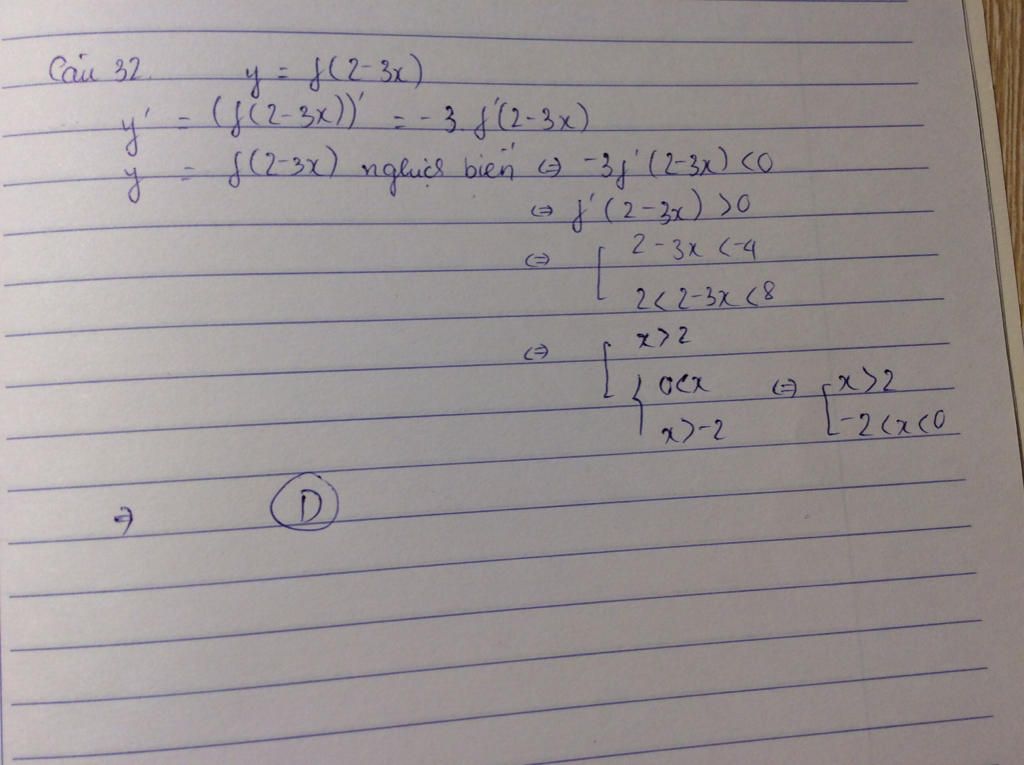 Câu 32. y = f(2-3x)
y' = (f(2-3x))' = -3 f'(2-3x)
y = f(2-3x) nghịch biến ⇔ -3f'(2-3x) <0
⇔ f'(2-3x) >0
⇔ [ 2-3x <-4
2<2-3x<8
⇔ [ x>2
{ 0<x ⇔ [ x>2
x>-2 -2<x<0
⇒ D